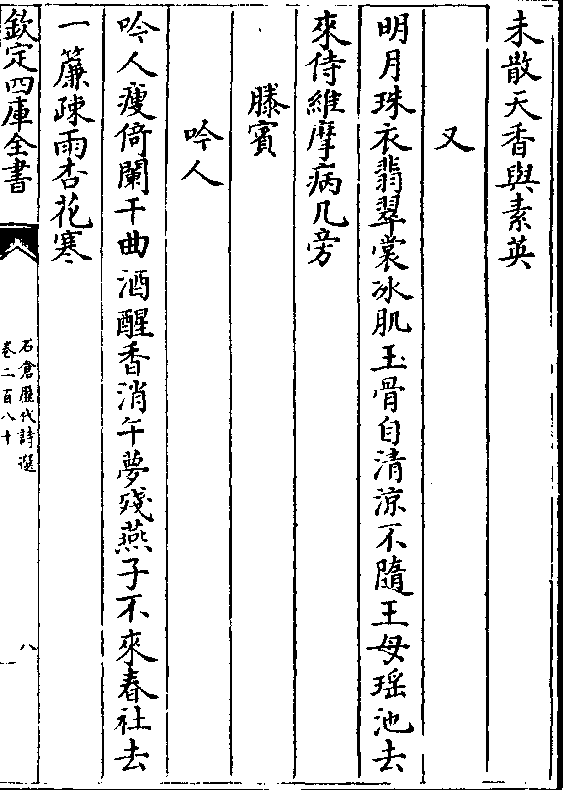 未散天香與素英
又
明月珠衣翡翠裳冰肌玉骨自清涼不隨王母瑶池去
來侍維摩病几旁
滕賓
吟人
吟人瘦倚闌干曲酒醒香消午夢殘燕子不來春社去
一簾疎雨杏花寒
欽定四庫全書
石倉歷代詩選
卷二百八十
八